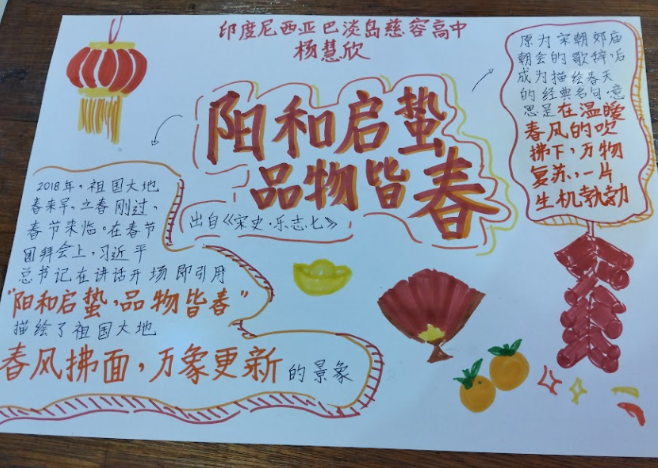 印度尼西亚巴淡岛慈容高中
杨慧欣
阳和启蛰
品物皆春
出自《宋史·乐志七》
原为宋朝郊庙
朝会的歌辞,后
成为描绘春天
的经典名句,意
思是在温暖
春风的吹
拂下,万物
复苏,一片
生机勃勃
2018年,祖国大地
春来早。立春刚过,
春节来临。在春节
团拜会上,习近平
总书记在讲话开场即引用
“阳和启蛰,品物皆春”
描绘了祖国大地
春风拂面,万象更新的景象